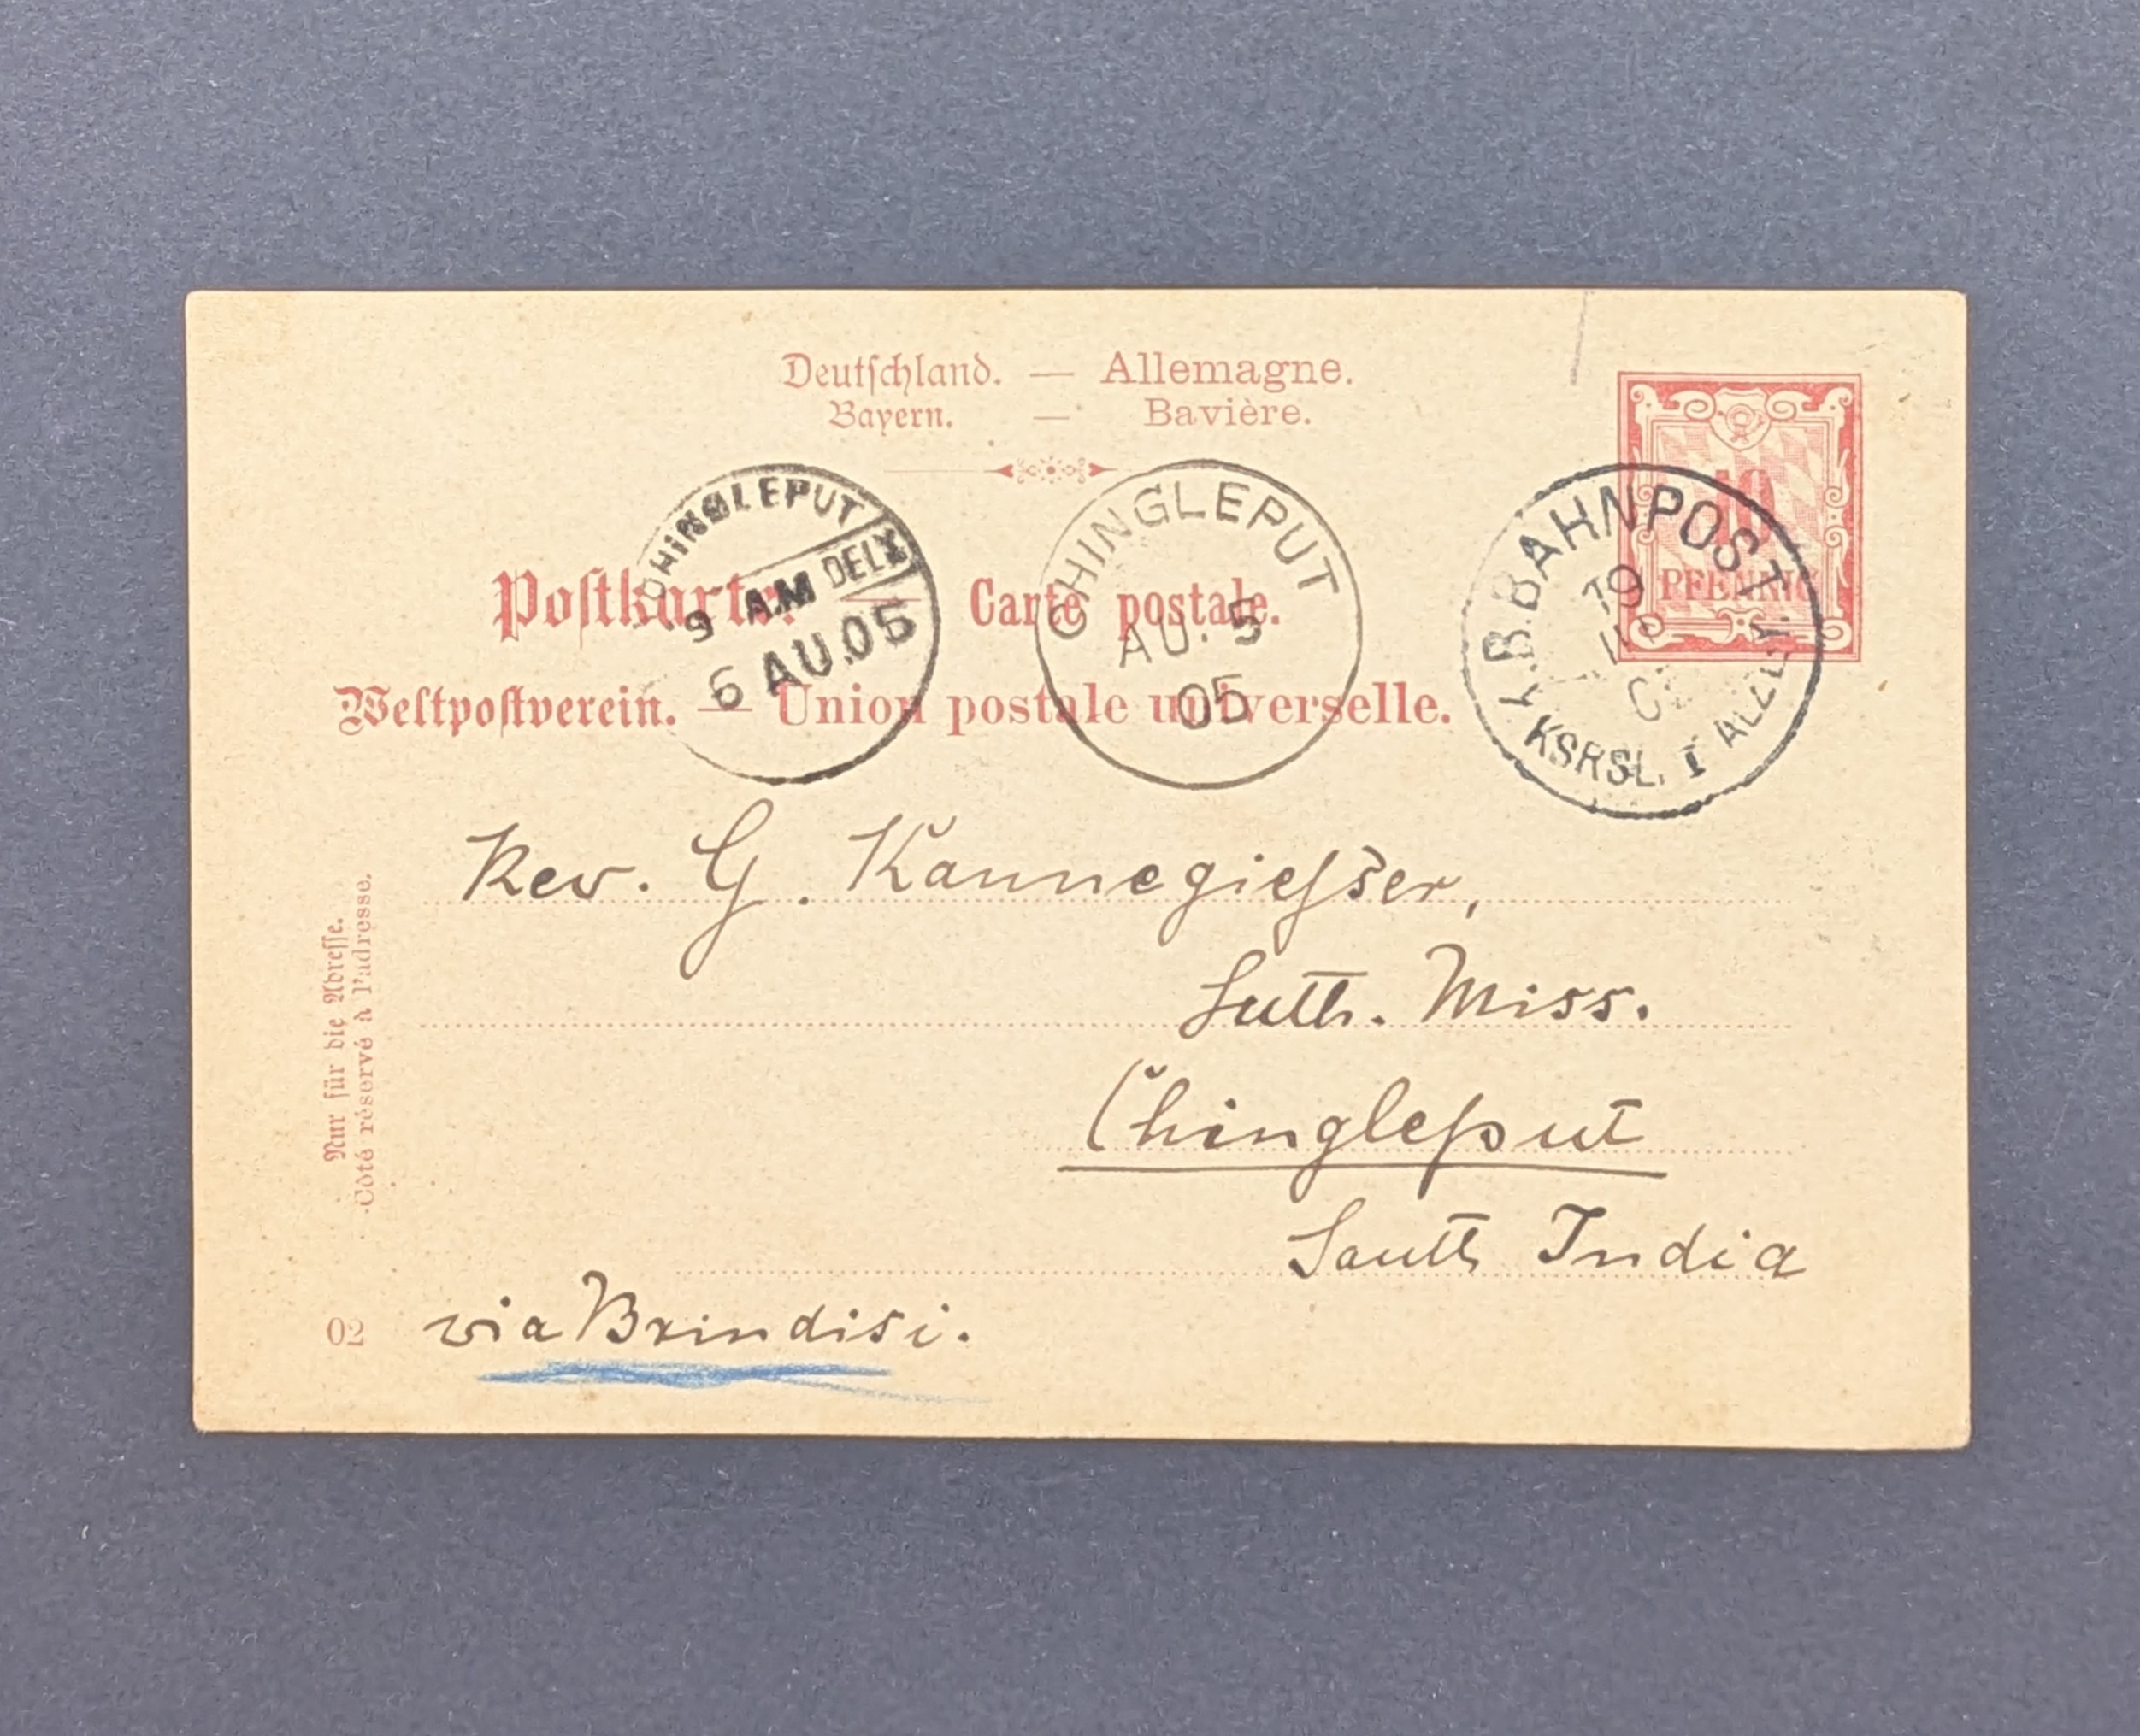 Deutschland. — Allemagne.
Bayern. — Bavière.
10
PFENNIG
Postkarte. — Carte postale.
Weltpostverein. — Union postale universelle.
CHINGLEPUT
DELY
9 A.M
6 AU.05
CHINGLEPUT
AU. 5
05
K.B.BAHNPOST
19
KSRSL. I ALZEY.
Rev. G. Kannegießer,
Luth. Miss.
Chingleput
South India
via Brindisi.
Nur für die Adresse.
Côté réservé à l'adresse.
02